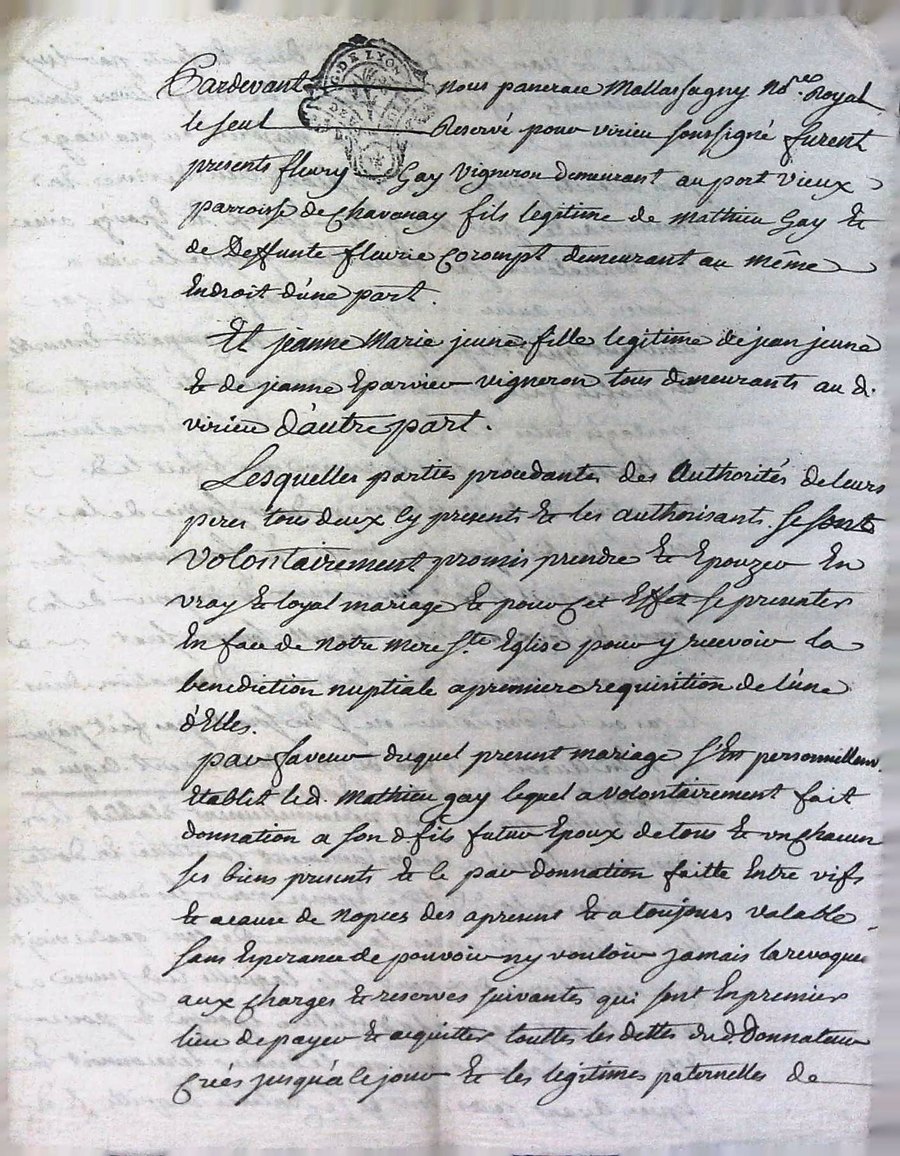 Pardevant nous panerace Mallassagny No.re Royal
G. DE LYON
le seul Reservé pour virieu soussigné furent
presents fleury Gay Vigneron demeurant au port Vieux
parroisse de Chavanay fils legitime de Mathieu Gay &
de Deffunte fleurie Corompt demeurant au même
Endroit d'une part.
Et jeanne Marie jeune fille legitime de jean jeune
& de jeanne Eparvier vigneron tous demeurants au d.
virieu d'autre part.
Lesquelles parties procedantes des Authorités de leurs
peres tous deux Cy presents & les authorisants se sont
Volontairement promis prendre & Epouzer En
vray & loyal mariage & pour Cet Effet se presenter
En face de notre mere Ste Eglise pour y recevoir la
benediction nuptiale a premiere requisition de l'une
d'Elles.
par faveur duquel present mariage s'En personnellem.
Etablit led. Mathieu gay lequel a Volontairement fait
donnation a son d fils futur Epoux de tous & un chacun
ses biens presents & ce par donnation faitte Entre vifs
& a cause de nopces des apresent & a toujours valable
sans Esperance de pouvoir ny vouloir jamais la revoquer
aux Charges & reserves suivantes qui sont En premier
lieu de payer & acquitter touttes les dettes du d. Donnateur
Créés jusqu'a ce jour & les legitimes paternelles de